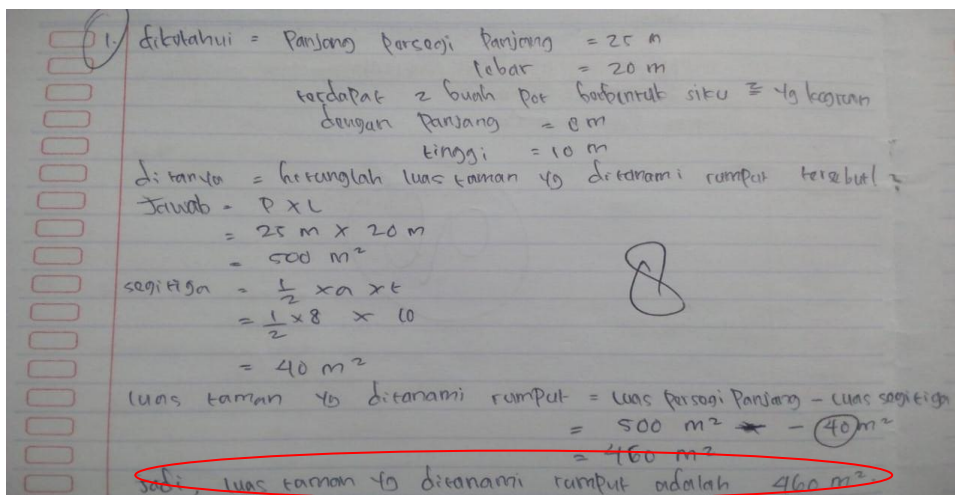 1. diketahui = Panjang Persegi Panjang = 25 m
lebar = 20 m
terdapat 2 buah Pot berbentuk siku ² yg kegiran
dengan Panjang = 8 m
tinggi = 10 m
ditanya = hitunglah luas taman yg ditanami rumput tersebut ?
Jawab = P x L
= 25 m x 20 m
= 500 m²
segitiga = 1/2 x a x t
= 1/2 x 8 x 10
= 40 m²
8
luas taman yg ditanami rumput = luas Persegi Panjang - luas segitiga
= 500 m² - 40 m²
= 460 m²
Jadi, luas taman yg ditanami rumput adalah 460 m².